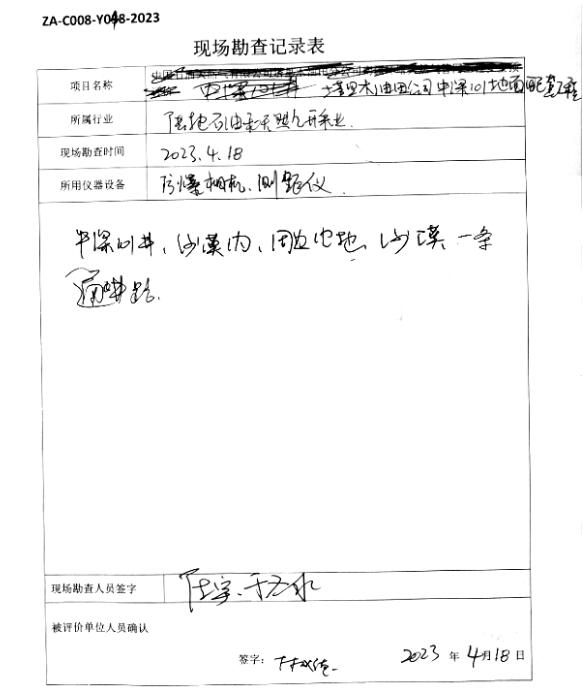 ZA-C008-Y048-2023
现场勘查记录表
项目名称 塔里木油田公司中深101地面配套工程
所属行业 陆地石油天然气开采业
现场勘查时间 2023.4.18
所用仪器设备 防爆相机、测距仪
中深101井、沙漠内、周边空地、沙漠、一条
通井路.
现场勘查人员签字
被评价单位人员确认
签字:
2023 年 4月18日